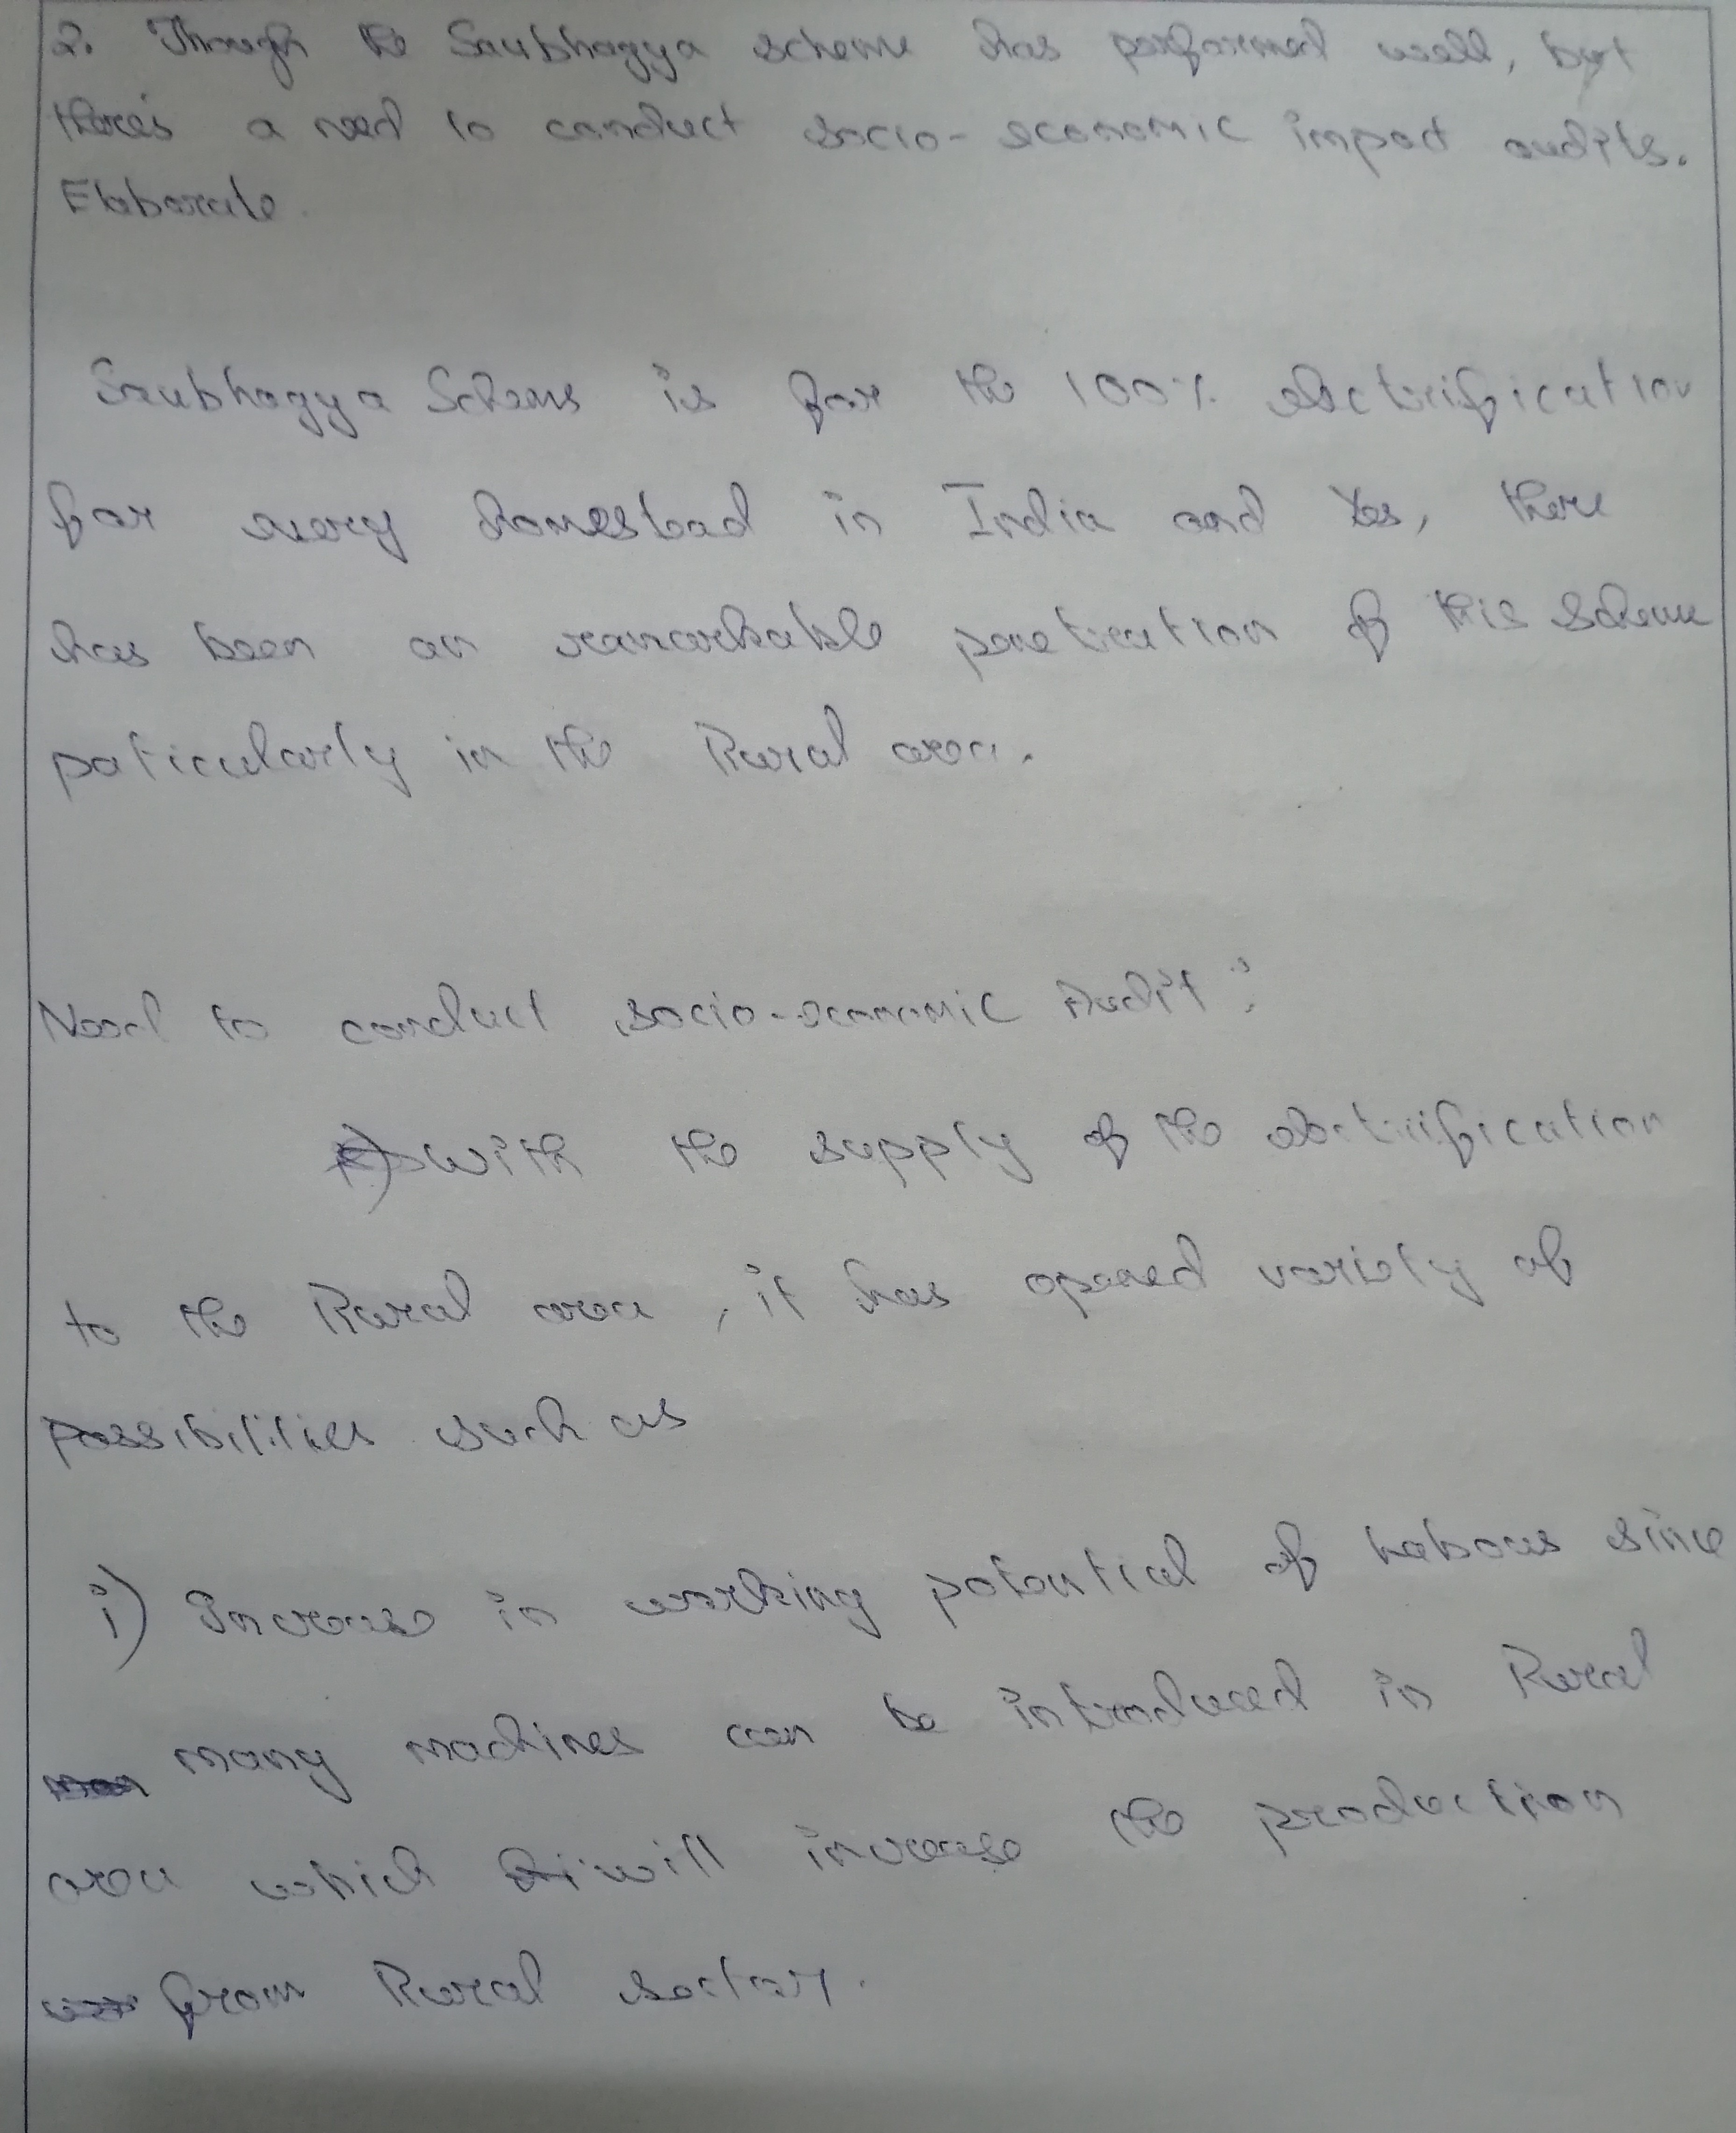 2. Though the Saubhagya scheme has performed well, but
there's a need to conduct socio-economic impact audits.
Elaborate.
Saubhagya Scheme is for the 100% electrification
for every homestead in India and Yes, there
has been an remarkable penetration of this scheme
paticularly in the Rural area.
Need to conduct socio-economic Audit:
With the supply of the electrification
to the Rural area, it has opened variety of
possibilities such as
i) Increase in working potential of labours since
many machines can be introduced in Rural
area which will increase the production
from Rural sector.